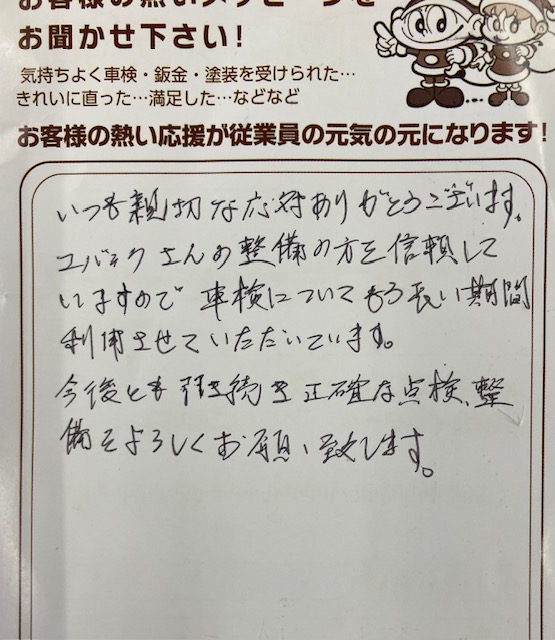 お客様の熱いメッセージを
お聞かせ下さい!
気持ちよく車検・鈑金・塗装を受けられた…
きれいに直った…満足した…などなど
お客様の熱い応援が従業員の元気の元になります!
いつも親切な応対ありがとうございます。
コバックさんの整備の方を信頼して
いますので車検についてもう長い期間
利用させていただいています。
今後とも引き続き正確な点検、整
備をよろしくお願い致します。